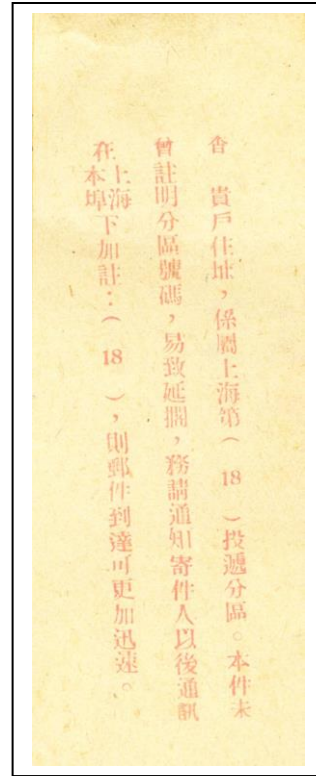 查　貴戶住址，係屬上海第（18）投遞分區。本件未
曾註明分區號碼，易致延擱，務請通知寄件人以後通訊
在上海本埠下加註：（18），則郵件到達可更加迅速。